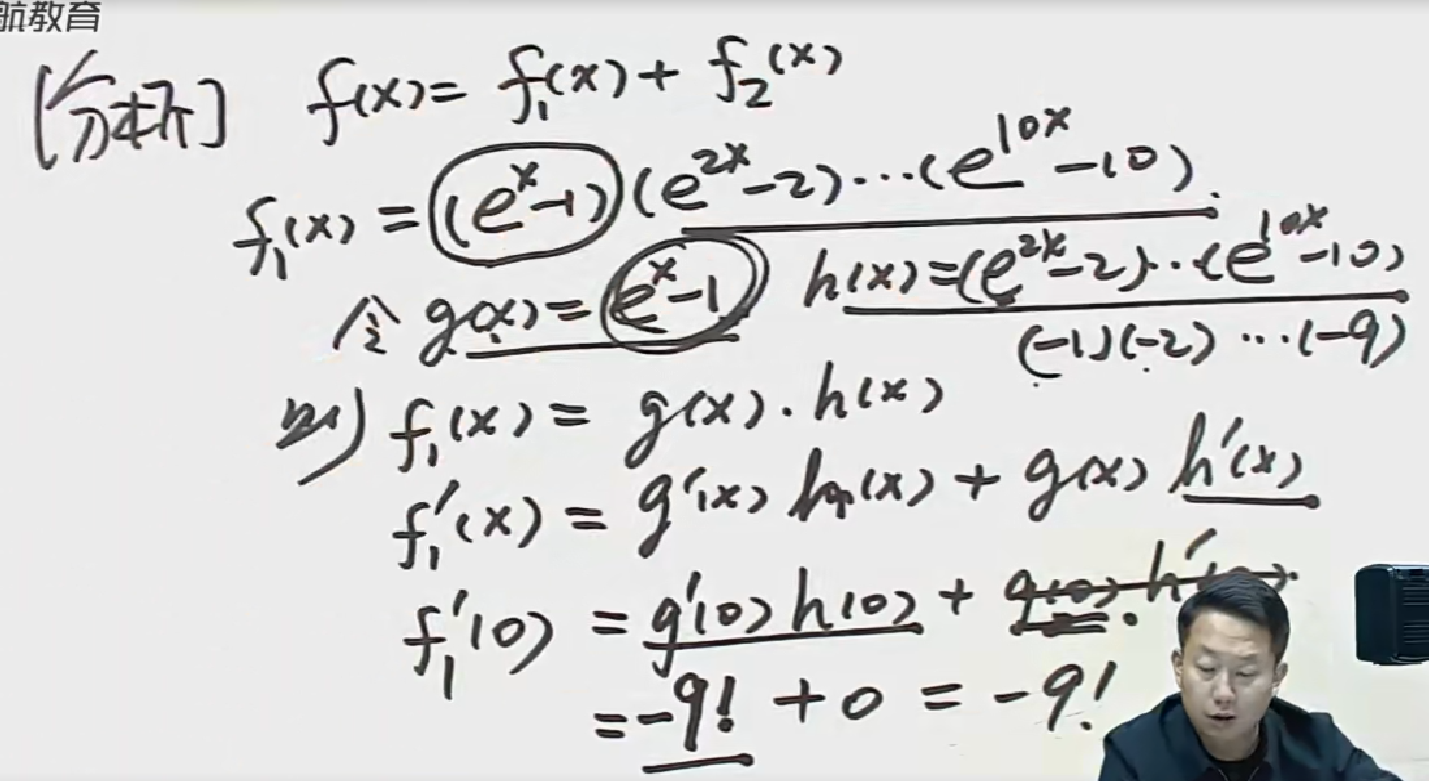 航教育
[分析] f(x) = f₁(x) + f₂(x)
f₁(x) = (eˣ-1)(e²ˣ-2)···(e¹⁰ˣ-10).
令 g(x) = eˣ-1 h(x) = (e²ˣ-2)···(e¹⁰ˣ-10)
(-1)(-2) ···(-9)
则 f₁(x) = g(x)·h(x)
f₁′(x) = g′(x) h(x) + g(x) h′(x)
f₁′(0) = g′(0) h(0) + g(0)·h′
= -9! + 0 = -9!